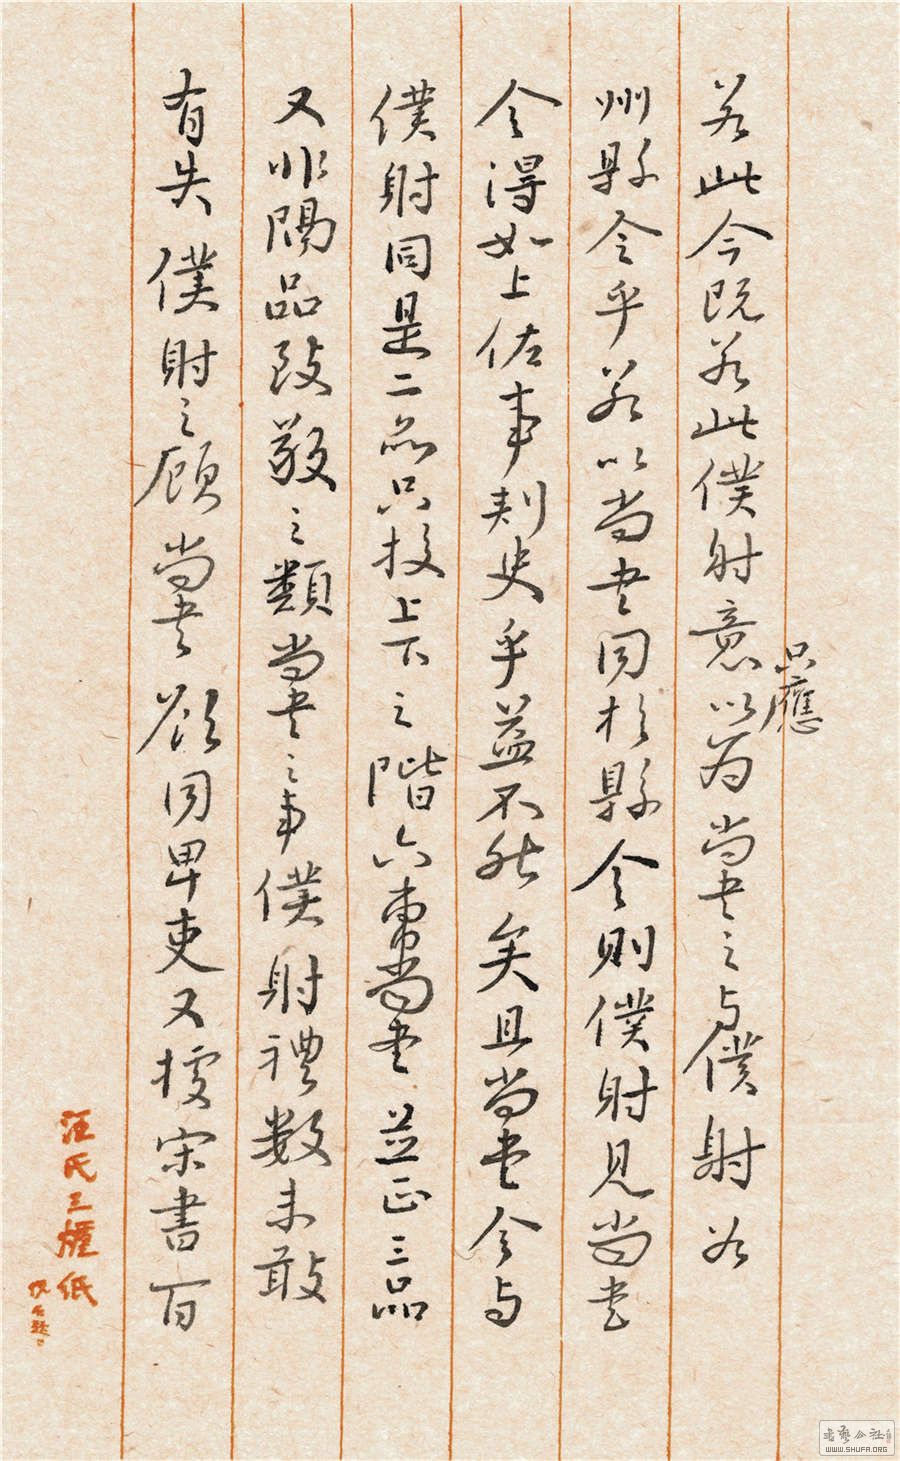 若此今既若此僕射意以为尚書之与僕射若
只應
州縣令乎若以尚書同於縣令則僕射見尚書
令得如上佐事刺史乎益不然矣且尚書令与
僕射同是二品只校上下之階六曹尚書並正三品
又非隔品致敬之類尚書之事僕射禮數未敢
有失僕射之顧尚書欲同卑吏又據宋書百
汪氏紙
書藝公社
WWW.SHUFA.ORG